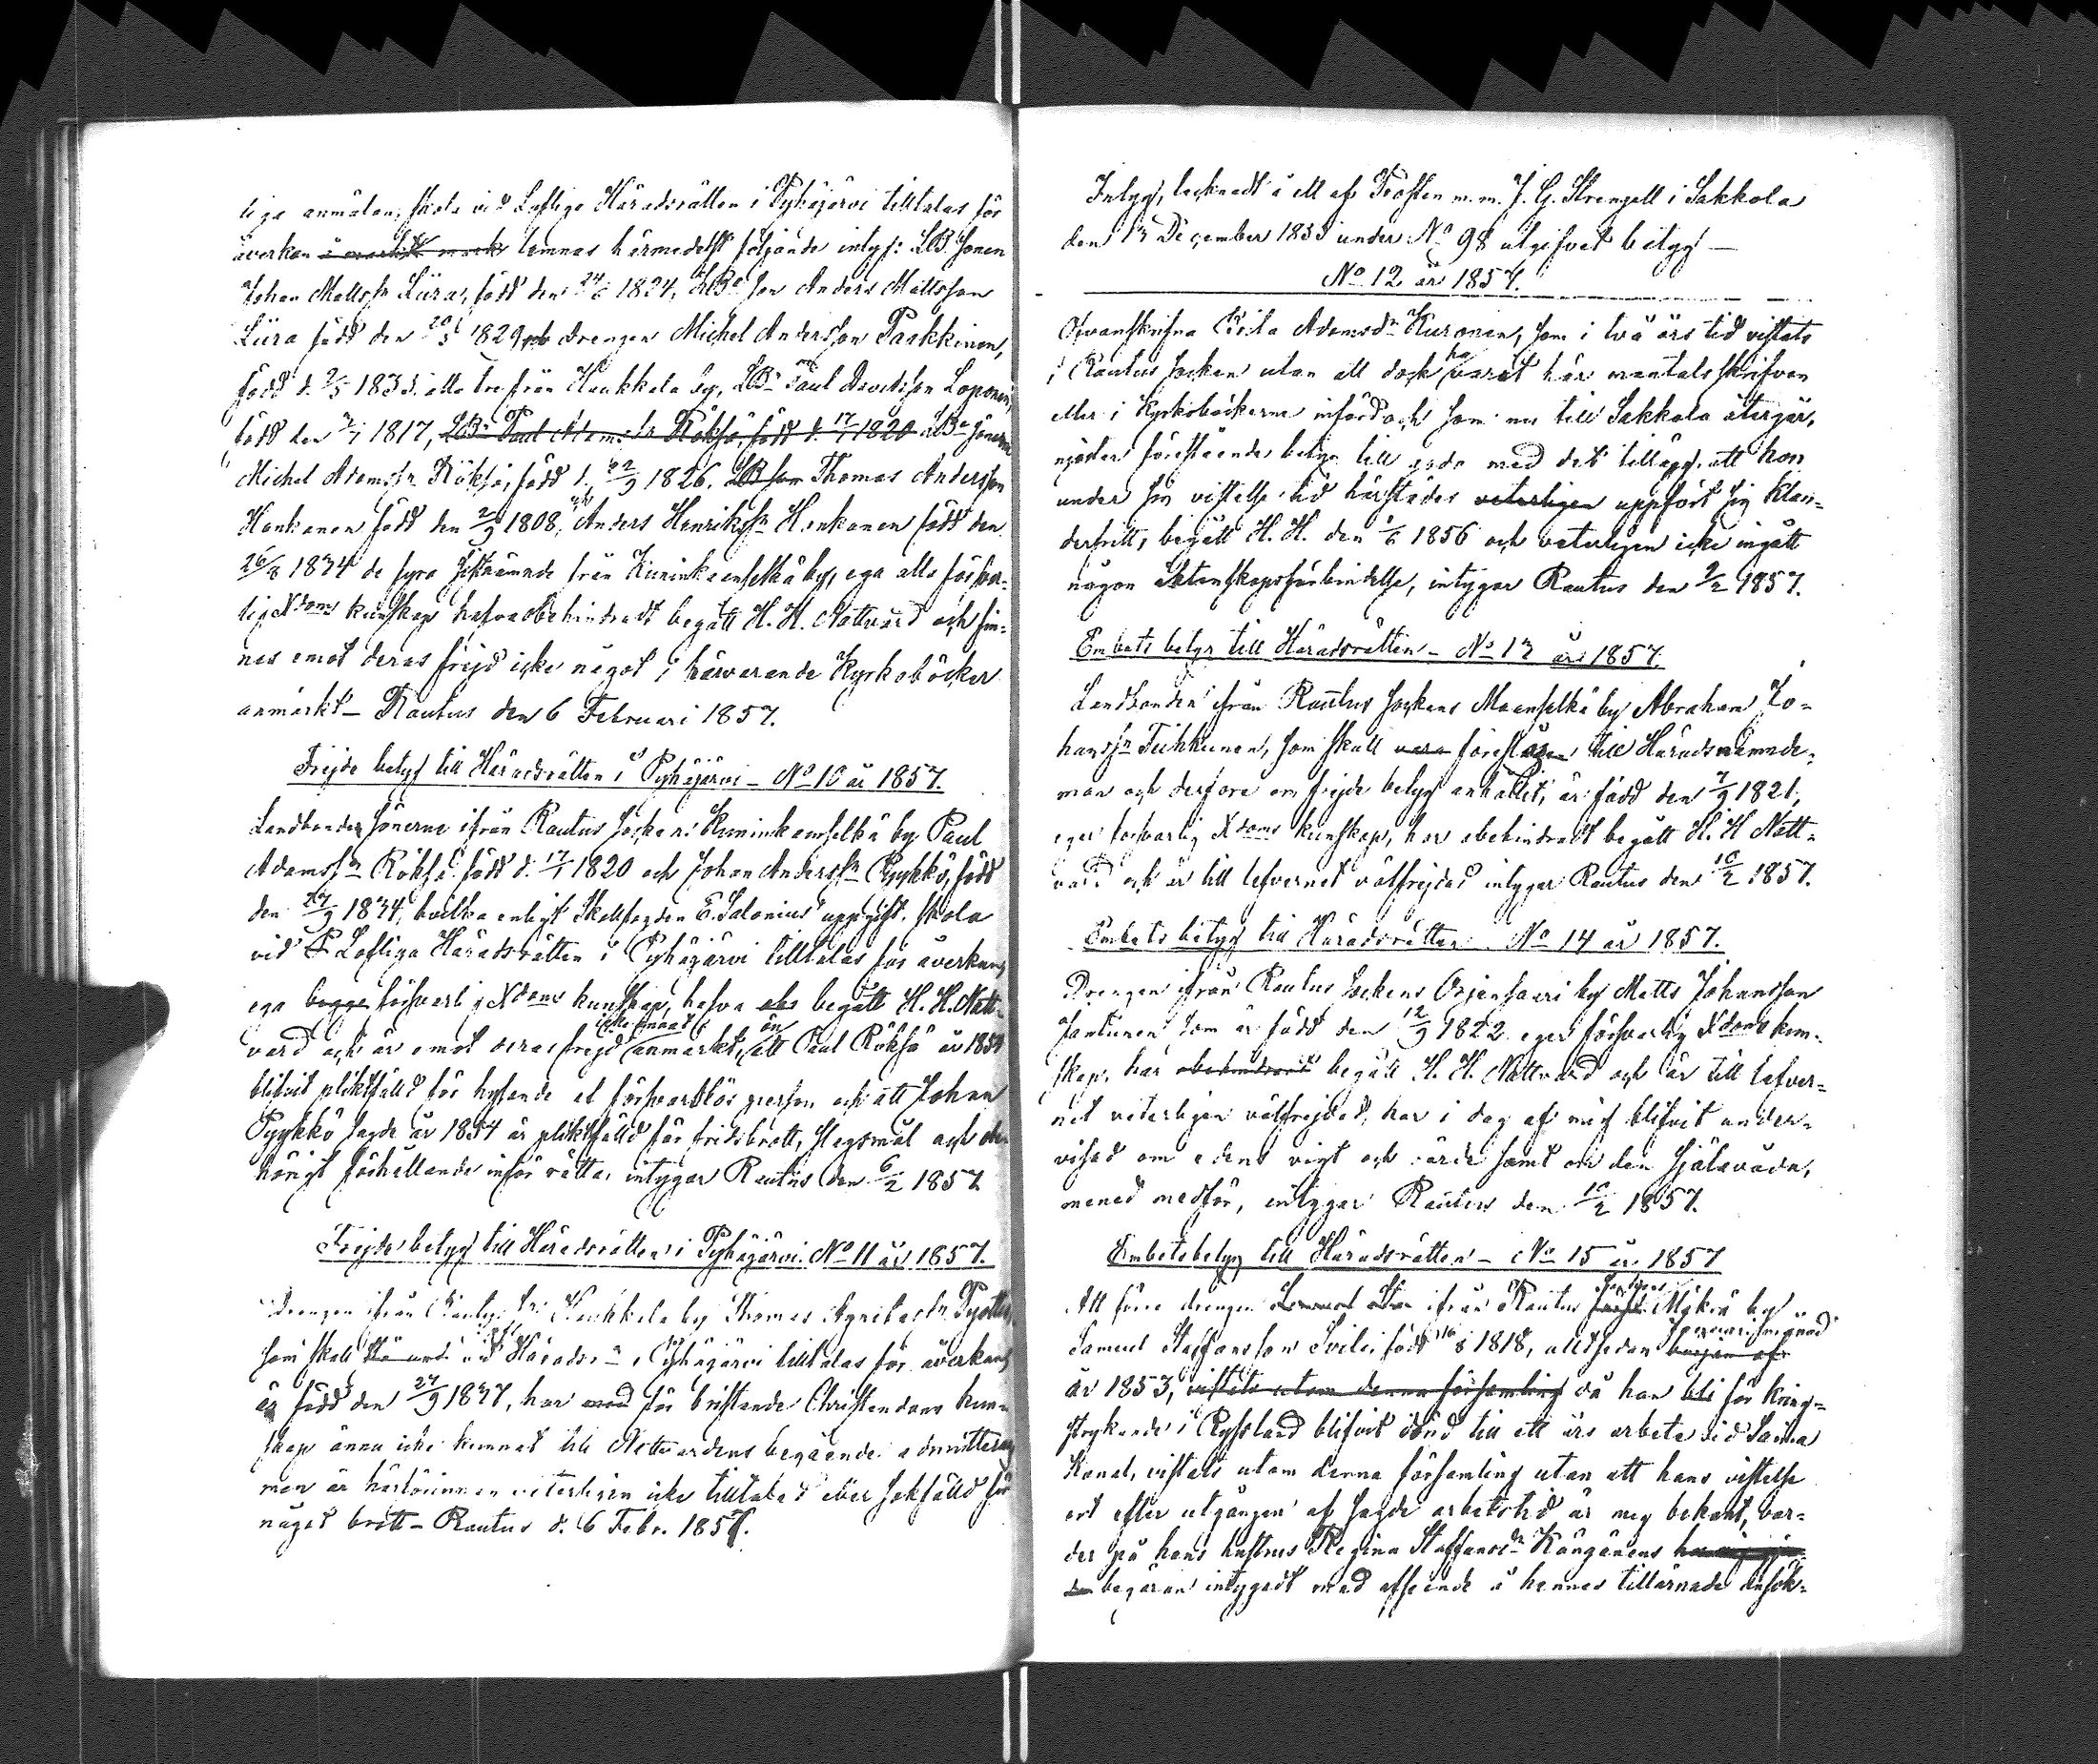 liga anmälan, skola vid Lofliga Häradsrätten i Pyhäjärvi tilltalas för
åverkan lemnas härmedelst följande intyg: LB. Sonen
Johan Mattss:n Liira, född den 24/6 1824, LB:de son Anders Mattsson
Liira född den 20/3 1829, och drengen Michel Andersson Paakkinen,
född d. 2/5 1833. alla tre från Haukkala by, LB:n Paul Davidsson Loponen,
född den 7/1 1817, LB:n Paul Adamss:n Röksä, född d. 17/1 1820 LB:de Sönerne
Michel Adamss:n Röksä, född d. 22/9 1826. LB son Thomas Andersson
Honkanen född den 2/9 1808, och Anders Henrikss:n Honkanen född den
26/8 1834 de fyra sistnämnde från Kuninkaanselkä by, ega alla försvar-
lig Xdoms kunskap hafva obehindradt begått H. H. Nattvard och fin-
nes emot deras frejd icke något i härvarande Kyrkoböcker
anmärkt – Rautus den 6 Februari 1857.
Frejde betyg till Häradsrätten i Pyhäjärvi – No 10 år 1857.
Landbonde Sönerne ifrån Rautus Sockens Kuninkaanselkä by Paul
Adamss:n Röksä född d. 17/1 1820 och Johan Anderss:n Pyykkö, född
den 27/9 1834, hvilka enligt Skallfogden E. Salonius' uppgift, skola
vid Lofliga Häradsrätten i Pyhäjärvi tilltalas för åverkan,
ega begge försvarlig Xdoms kunskap, hafva obe begått H. H. Natt-
vard och är emot deras frejd icke annat anmärkt, än att Paul Röksä år 1854
blifvit pliktfälld för hysande af försvarslös person och att Johan
Pyykkö sagde år 1854 är pliktfälld för fridsbrott, slagsmål och
hörigt förhållande inför rätta, intygar Rautus den 6/2 1857.
Frejde betyg till Häradsrätten i Pyhäjärvi. No 11 år 1857.
Drengen ifrån Haukkala by Thomas
som skall vid Häradsr:n i Pyhäjärvi tilltalas för åverkan,
är född den 27/9 1837, har för bristande Christendoms kun-
skap ännu icke kunnat till Nattvardens begående admitteras
men är härförinnan veterligen icke tilltalad eller sakfälld för
något brott – Rautus d. 6 Febr. 1857.
Intyg, tecknadt å ett af Prosten m. m. J. G. Strengell i Sakkola
den 13 December 1855 under No 98 utgifvet betyg —
No 12 år 1857.
Ofvanskrifna Adamsd:r Kuronen, som i två års tid vistats
i Rautus Socken utan att dock ha varit här mantalsskrifven
eller i Kyrkoböckerne införd och som nu till Sakkola återgår,
njuter förestående betyg till godo med det tillägg, att hon
under sin vistelse tid härstädes veterligen uppfört sig klan-
derfritt, begått H. H. den 1/6 1856 och veterligen icke ingått
någon Ektenskapsförbindelse, intygar Rautus den 9/2 1857.
Embets betyg till Häradsrätten – No 13 år 1857.
Landbonden ifrån Rautus Sockens Maanselkä by Abraham Jo-
hanss:n Tuhkunen, som skall vara föreslagen till Häradsnämnde-
man och derföre om frejde betyg anhållit, är född den 7/9 1821,
eger försvarlig Xdoms kunskap, har obehindradt begått H. H Natt-
vard och är till lefvernet välfrejdad intygar Rautus den 10/2 1857.
Embets betyg till Häradsrätten – No 14 år 1857.
Drengen ifrån Rautus Sockens Orjansaari by Matts Johansson
Jantunen som är född den 12/9 1822 eger försvarlig Xdoms kun-
skap, har obehindradt begått H. H. Nattvard och är till lefver-
net veterligen välfrejdad, har i dag af mig blifvit under-
visad om edens vigt och värde samt om den själavåda,
mened medför, intygar Rautus den 10/2 1857.
Embetsbetyg till Häradsrätten – No 15 år 1857
Att förre drengen ifrån Rautus Sockens Mäkrä by
Samuel Staffansson född 1818, alltsedan
år 1853, vistats utom denna församling då han för kring-
strykande i Ryssland blifvit dömd till ett års arbete vid Saima
Kanal, vistats utom denna församling utan att hans vistelse
ort efter utgången af sagde arbetstid är mig bekant, var-
der på hans hustrus Regina Staffansd:r Känganens
begäran intygadt med afseende å hennes tillärnade ansök-